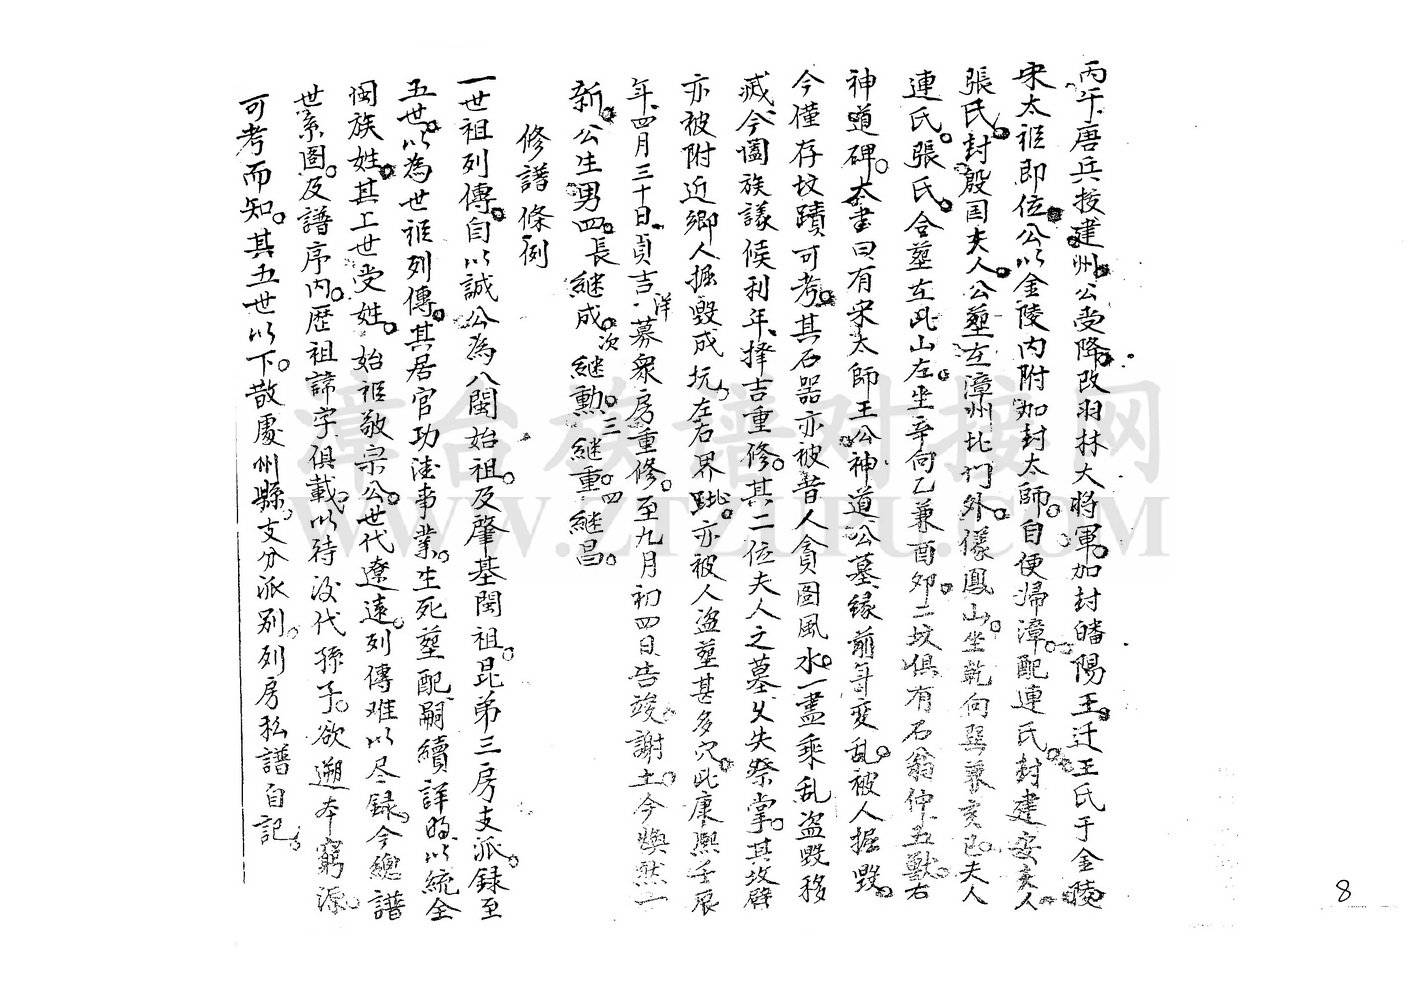 丙午唐兵按建州。公受降。改羽林大將軍。加封皤陽王。迁王氏于金陵
宋太祖即位。公以金陵内附。加封太師。自便歸漳。配連氏。封建安夫人。
張氏。封殷国夫人。公墓在漳州北門外。儀鳳山。坐乾向巽兼亥巳。夫人
連氏。張氏。合墓在此山左。坐辛向乙兼酉夘。二坟俱有石翁仲五獸。右
神道碑。本書曰有宋太師王公神道公墓。縁前年变乱。被人掘毁。
今僅存坟蹟可考。其石器亦被昔人貪图風水。一盡乘乱盗毁移
滅。今闔族議候利年。擇吉重修。其二位夫人之墓。乂失祭掌。其坟僻
亦被附近鄉人掘毁成坑。左右界趾。亦被人盗墓甚多穴。此康熙壬辰
年。四月三十日。貞吉。洋募衆房重修。至九月初四日告竣。謝土。今焕然一
新。公生男四。長継成。次継勳。三継重。四継昌。
修譜條例
一世祖列傳。自以誠公為八閩始祖。及肇基閩祖。昆弟三房支派。録至
五世。以為世祖列傳。其居官功德事業。生死墓配。嗣續詳明。以統全
闽族姓。其上世受姓。始祖敬宗公。世代遼遠。列傳难以尽録。今總譜
世系图。及譜序内。歴祖諱字俱載。以待後代孫子。欲遡本窮源。
可考而知。其五世以下。散處州縣。支分派别。列房私譜自記。
8
漳台族譜对接网
WWW.ZTZUPU.COM